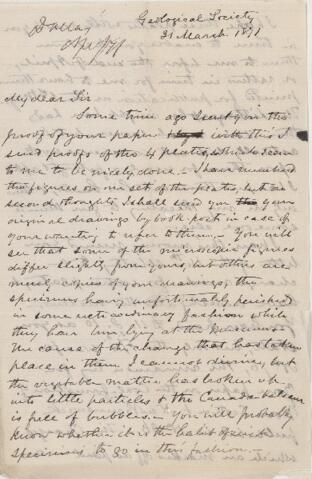 Dallas
Geological Society
31 March 1871
My dear Sir
Some time ago I sent you the
proof of your paper with this I
send proofs of the 4 plates, which seem
to me to be nicely done. I have numbered
the figures on one set of the plates, but on
second thoughts, I shall send you your
original drawings by book post in case of
your wanting to refer to them. You will
see that some of the microscopic figures
differ slightly from yours, but others are
merely copies of your drawings, the
specimens having unfortunately perished
in some extraordinary fashion while
they have been lying at the Museum.
The cause of the change that has taken
place in them I cannot divine, but
the vegetable matter has broken up
into little particles & the Canada balsam
is full of bubbles. You will probably
know whether it is the habit of such
specimens to go in this fashion.